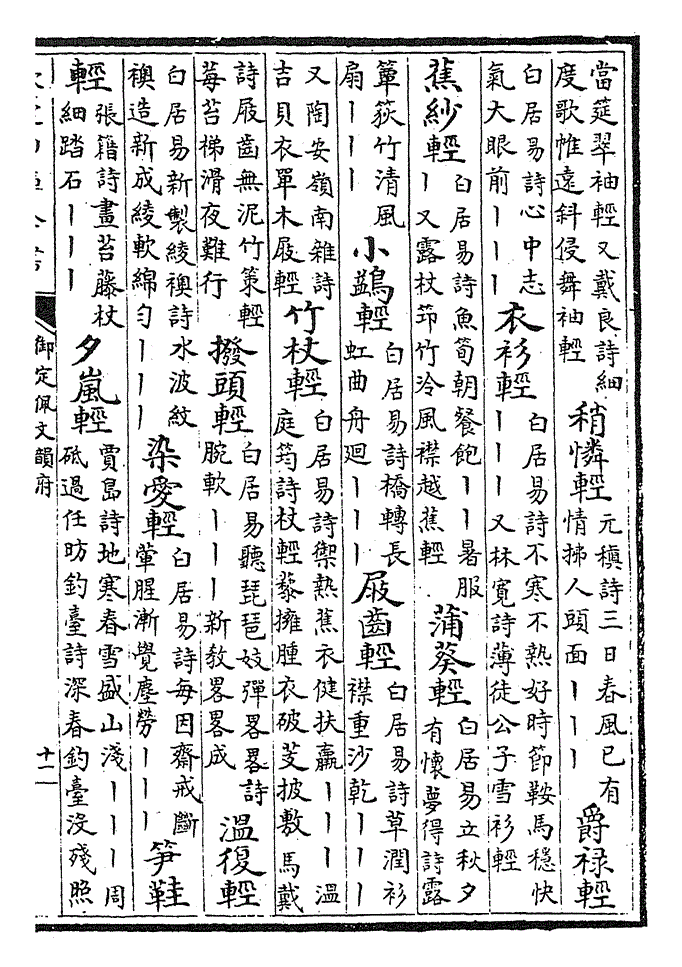 當筵翠袖輕又戴良詩細
度歌惟遠斜侵舞袖輕
稍憐輕
元稹詩三日春風已有
情拂人頭面丨丨丨
爵祿輕
白居易詩心中志
氣大眼前丨丨丨
衣衫輕
白居易詩不寒不熱好時節鞍馬穩快
丨丨丨又林寬詩薄徒公子雪衫輕
蕉紗輕
白居易詩魚筍朝餐飽丨丨暑服
丨又露杖筇竹冷風襟越蕉輕
蒲葵輕
白居易立秋夕
有懷夢得詩露
簟荻竹清風
扇丨丨丨
小鷁輕
白居易詩橋轉長
虹曲舟迴丨丨丨
屐齒輕
白居易詩草潤衫
襟重沙乾丨丨丨
又陶安嶺南雜詩
吉貝衣單木屐輕
竹杖輕
白居易詩禦熱蕉衣健扶羸丨丨丨溫
庭筠詩杖輕藜擁腫衣破芰披敷馬戴
詩屐齒無泥竹策輕
莓苔梯滑夜難行
撥頭輕
白居易聽琵琶妓彈畧畧詩
腕軟丨丨丨新教畧畧成
溫復輕
白居易新製綾襖詩水波紋
襖造新成綾軟綿勻丨丨丨
染愛輕
白居易詩每因齋戒斷
葷腥漸覺塵勞丨丨丨
筍鞋
輕
張籍詩畫苔藤杖
細踏石丨丨丨
夕嵐輕
賈島詩地寒春雪盛山淺丨丨丨周
砥過任昉釣臺詩深春釣臺沒殘照
御定佩文韻府
十一